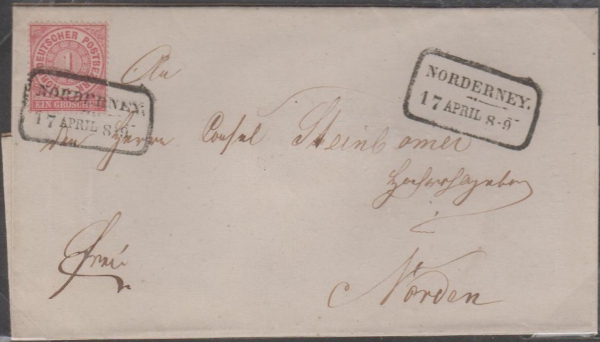 NORDDEUTSCHER POSTBEZIRK
1
EIN GROSCHEN
NORDERNEY.
17 APRIL 8-9
NORDERNEY.
17 APRIL 8-9
An
den Herrn Consul Steinbömer
Hochwohlgeboren
frei
Norden